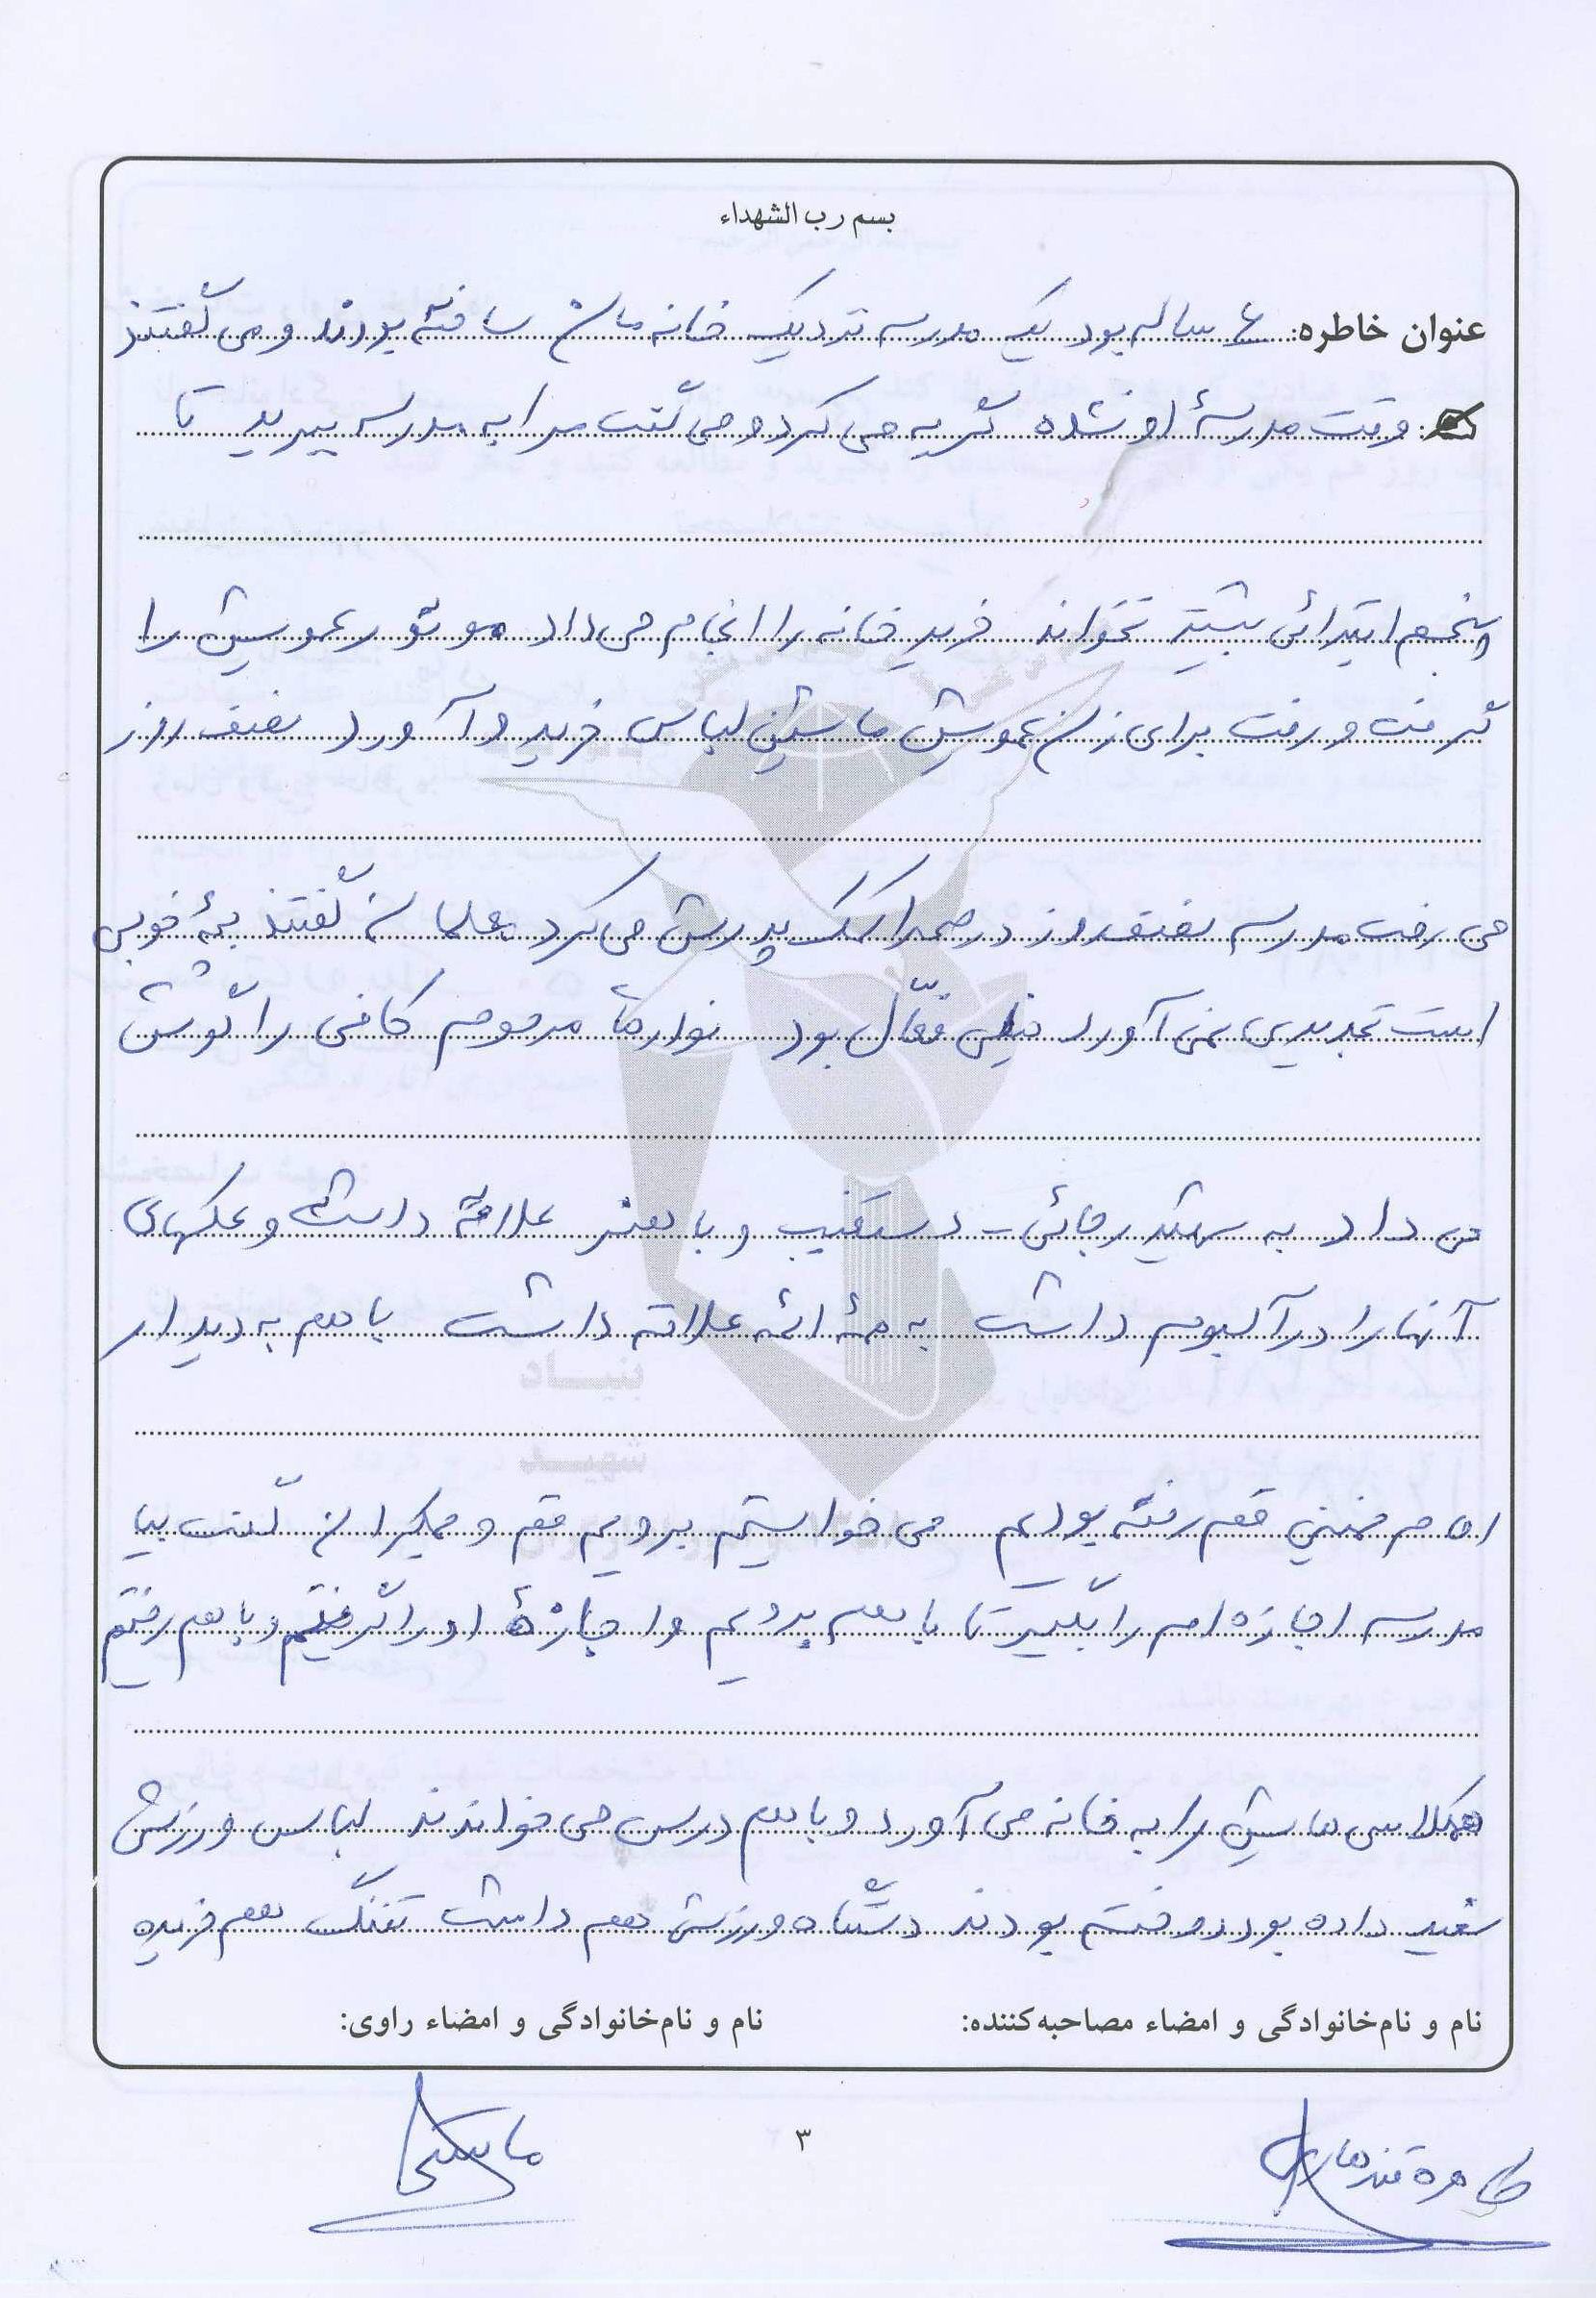 بسم رب الشهداء
عنوان خاطره: ۶ ساله بود یک مدرسه نزدیک خانه مان ساخته بودند و می گفتند
وقت مدرسهٔ او نشده گریه می کرد و می گفت مرا به مدرسه ببرید تا
پنجم ابتدائی بیشتر نخواند خرید خانه را انجام می داد موتور عمویش را
گرفت و رفت برای زن عمویش ماشین لباس خرید و آورد نصف روز
می رفت مدرسه نصف روز در صحرا کمک پدرش می کرد معلمان گفتند بچهٔ خوبی
است تجدیدی نمی آورد خیلی فعّال بود نوارهای مرحوم کافی را گوش
می داد به شهید رجائی - دستغیب و با هنر علاقه داشت و عکسهای
آنها را در آلبوم داشت به همهٔ ائمه علاقه داشت با هم به دیدار
امام خمینی قم رفته بودیم می خواستیم برویم قم و جمکران گفت بیا
مدرسه اجازه ام را بگیر تا با هم برویم و اجازهٔ او را گرفتیم و با هم رفتیم
همکلاسی هایش را به خانه می آورد و با هم درس می خواندند لباس ورزشی
تغییر داده بود دوخته بودند دستگاه ورزشی هم داشت تفنگ هم خریده
نام و نام‌خانوادگی و امضاء مصاحبه‌کننده:
نام و نام‌خانوادگی و امضاء راوی:
۳
طاهره قندهاری
بنیاد
شهید